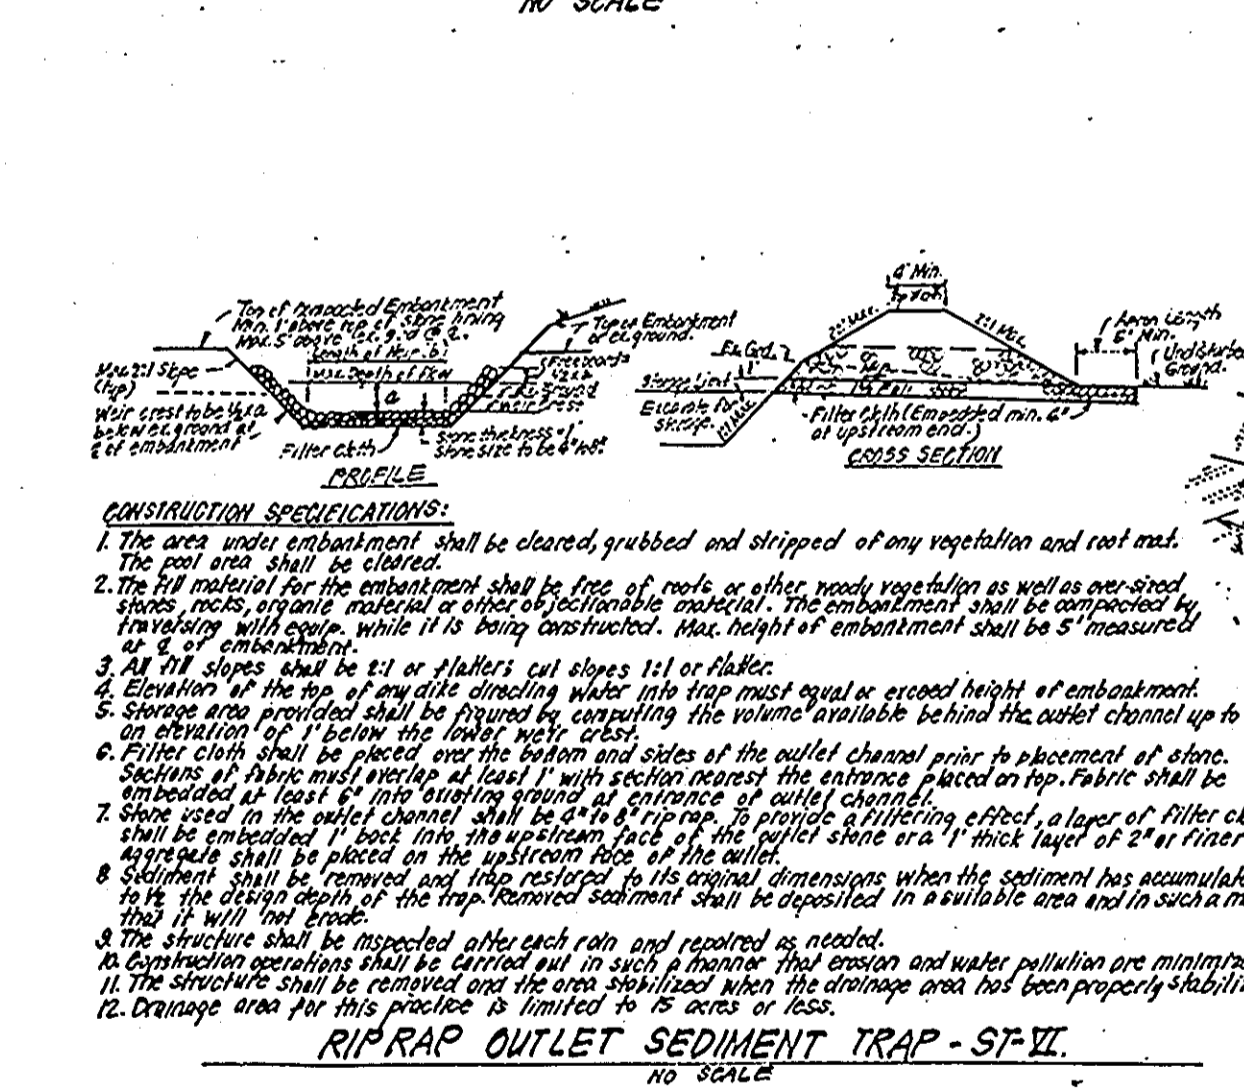 NO SCALE
Top of Compacted Embankment
Min. 1' above top of stone lining
Max. 5' above ex. grd @ ¢.
Length of Weir b:
Max. 2:1 Slope
(typ)
Weir crest to be
below ex. ground at
¢ of embankment
a
Filter Cloth
Stone thickness 1'
Stone size to be 4" to 8".
Top of Embankment
or ex ground.
Freeboard
Ex. Ground
Weir Crest
PROFILE
4' Min.
2:1 Max.
2:1 Max.
Apron Length
Min.
Undisturbed
Ground.
Ex. Grd.
1'
Storage Limit
Excavate for
storage.
1:1 Max.
Filter Cloth (Embedded min. 6"
at upstream end.)
CROSS SECTION
CONSTRUCTION SPECIFICATIONS:
1. The area under embankment shall be cleared, grubbed and stripped of any vegetation and root mat.
The pool area shall be cleared.
2. The fill material for the embankment shall be free of roots or other woody vegetation as well as over-sized
stones, rocks, organic material or other objectionable material. The embankment shall be compacted by
traversing with equip. while it is being constructed. Max. height of embankment shall be 5' measured
at ¢ of embankment.
3. All fill slopes shall be 2:1 or flatter; cut slopes 1:1 or flatter.
4. Elevation of the top of any dike directing water into trap must equal or exceed height of embankment.
5. Storage area provided shall be figured by computing the volume available behind the outlet channel up to
an elevation of 1' below the lower weir crest.
6. Filter cloth shall be placed over the bottom and sides of the outlet channel prior to placement of stone.
Sections of fabric must overlap at least 1' with section nearest the entrance placed on top. Fabric shall be
embedded at least 6" into existing ground at entrance of outlet channel.
7. Stone used in the outlet channel shall be 4" to 8" rip rap. To provide a filtering effect, a layer of filter cl
shall be embedded 1' back into the upstream face of the outlet stone or a 1' thick layer of 2" or finer
aggregate shall be placed on the upstream face of the outlet.
8 Sediment shall be removed and trap restored to its original dimensions when the sediment has accumulat
to 1/2 the design depth of the trap. Removed sediment shall be deposited in a suitable area and in such a m
that it will not erode.
9. The structure shall be inspected after each rain and repaired as needed.
10. Construction operations shall be carried out in such a manner that erosion and water pollution are minimiz
11. The structure shall be removed and the area stabilized when the drainage area has been properly stabili
12. Drainage area for this practice is limited to 15 acres or less.
RIPRAP OUTLET SEDIMENT TRAP - ST-VI.
NO SCALE